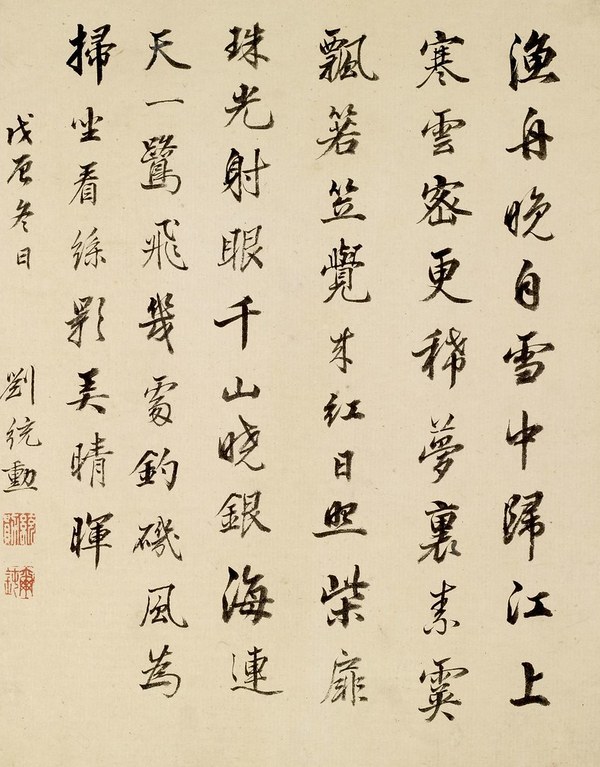 漁舟晚自雪中歸江上
寒雲密更稀夢裏素霙
飄箬笠覺來紅日照柴扉
珠光射眼千山曉銀海連
天一鷺飛幾處釣磯風為
掃坐看絲影弄晴暉
戊辰冬日 劉統勳